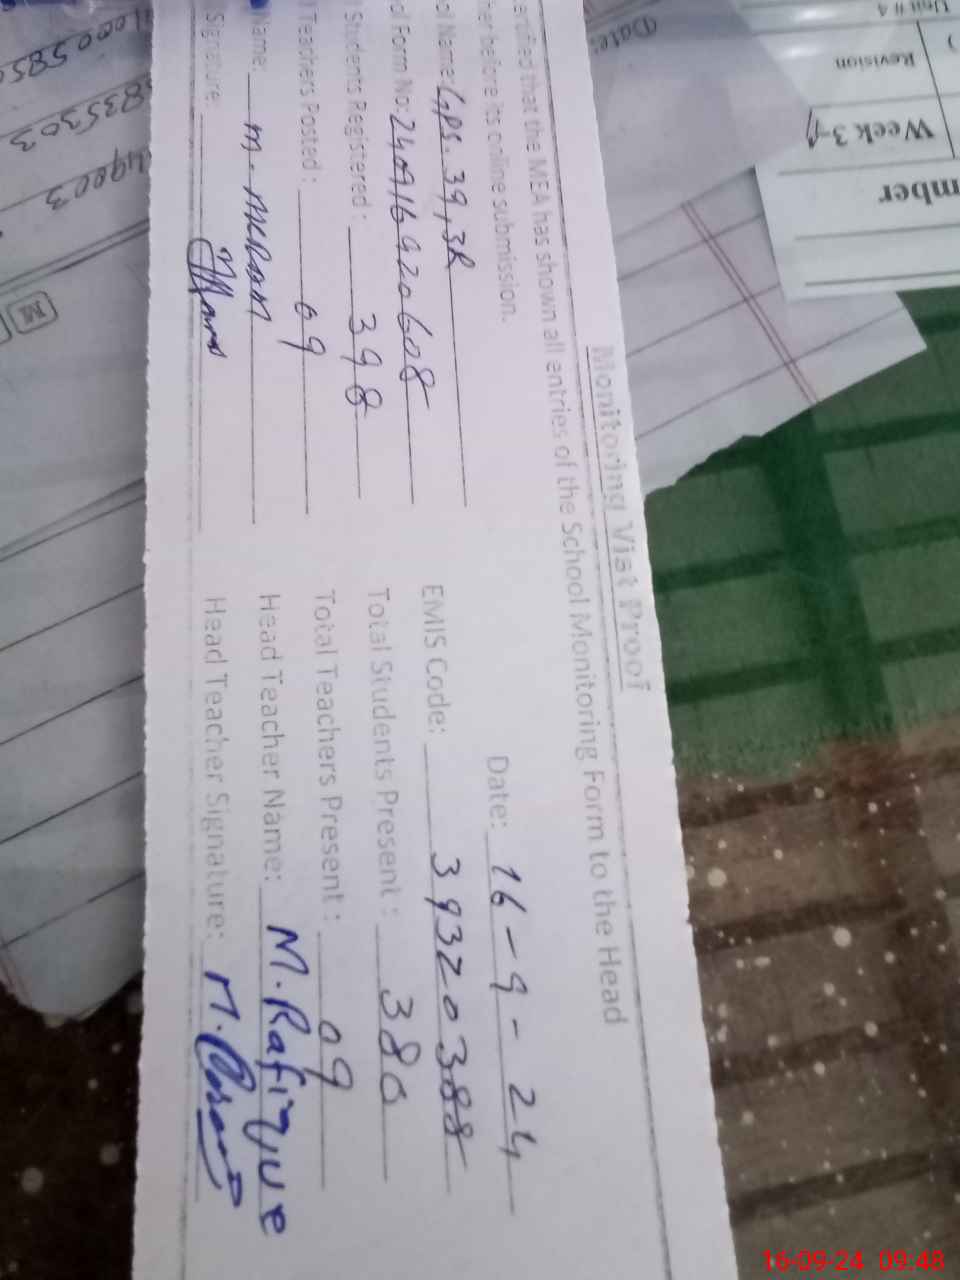 Monitoring Visit Proof
ertified that the MEA has shown all entries of the School Monitoring Form to the Head
her before its online submission.
Date: 16-9-24
ol Name: GPS. 39,3R
EMIS Code: 39320388
ol Form No: 240916920608
Total Students Present: 380
l Students Registered: 398
Total Teachers Present: 09
l Teachers Posted: 09
Head Teacher Name: M. Rafique
Name:
Head Teacher Signature:
Signature:
Date:
Unit # 4
Revision
Week 3-4
mber
835303
49003
M
16-09-24 09:48